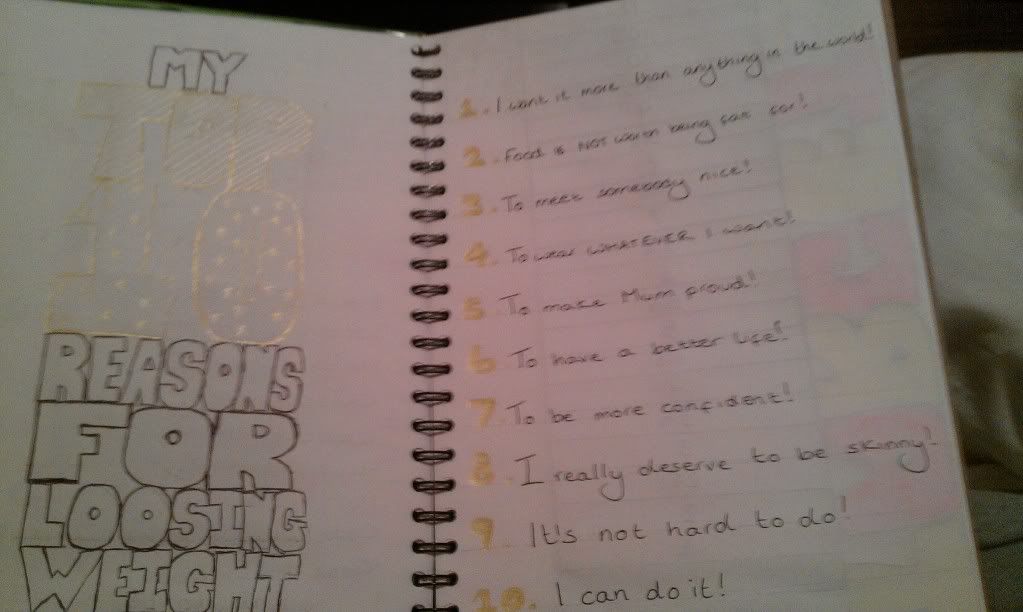 MY
TOP
10
REASONS
FOR
LOOSING
WEIGHT
1. I want it more than anything in the world!
2. Food is NOT worth being fat for!
3. To meet somebody nice!
4. To wear WHATEVER I want!
5. To make Mum proud!
6. To have a better life!
7. To be more confident!
8. I really deserve to be skinny!
9. It's not hard to do!
10. I can do it!